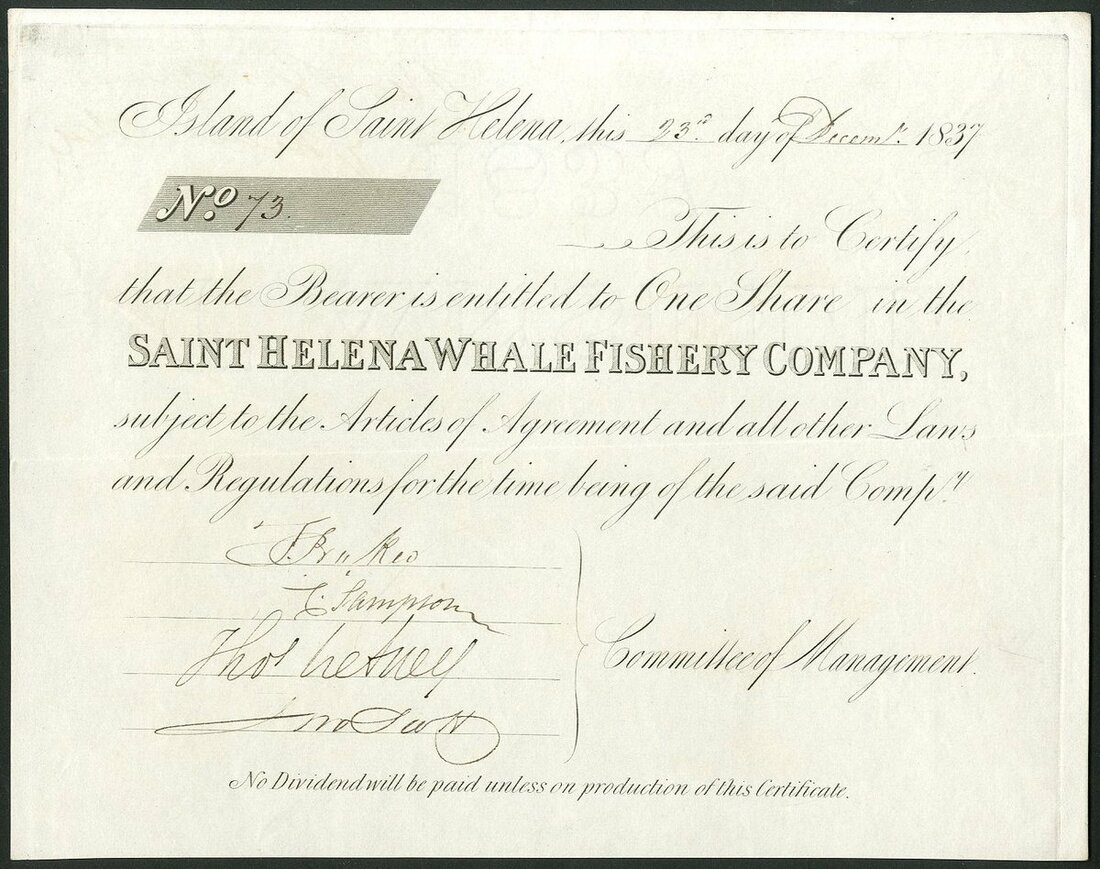 Island of Saint Helena, this 23rd day of Decemr. 1837
No. 73.
This is to Certify,
that the Bearer is entitled to One Share in the
SAINT HELENA WHALE FISHERY COMPANY,
subject to the Articles of Agreement and all other Laws
and Regulations for the time being of the said Compy.
Sampson
Thos
Jno Scott
Committee of Management.
No Dividend will be paid unless on production of this Certificate.